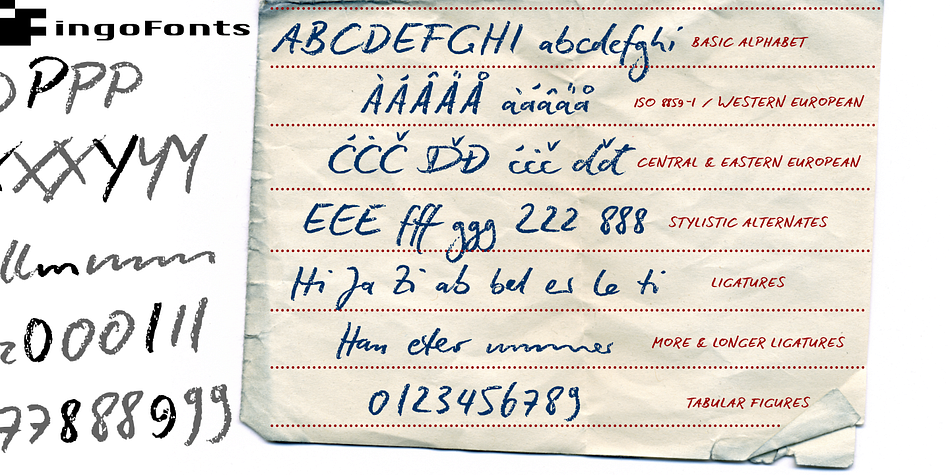 ingoFonts
PPP
XXXYYY
000111
77888999
ABCDEFGHI abcdefghi BASIC ALPHABET
ÀÁÂÄÅ àáâäå ISO 8859-1 / WESTERN EUROPEAN
ĆĊČ ĎĐ ćċč ďđ CENTRAL & EASTERN EUROPEAN
EEE fff ggg 222 888 STYLISTIC ALTERNATES
Hi Ja Zi ab bel er le ti LIGATURES
Han eter mmmer MORE & LONGER LIGATURES
0123456789 TABULAR FIGURES